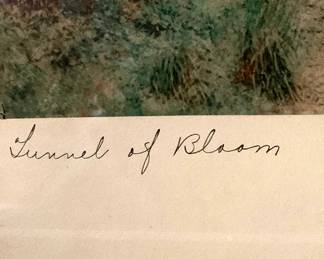 Tunnel of Bloom